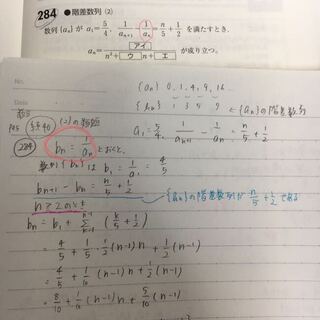 284 ●階差数列(2)
数列{aₙ}が a₁=5/4, 1/aₙ₊₁ - 1/aₙ = n/5 + 1/2 を満たすとき,
aₙ= アイ / (n²+ウn+エ) が成り立つ。
No.
Date
{aₙ} 0, 1, 4, 9, 16
{bₙ} 1 3 5 9 ←{aₙ}の階差数列
P65 例題40 (2)の類題
a₁=5/4, 1/aₙ₊₁ - 1/aₙ = n/5 + 1/2
284
bₙ = 1/aₙ とおくと、
数列{bₙ}は b₁ = 1/a₁ = 4/5
bₙ₊₁ - bₙ = n/5 + 1/2
{aₙ}の階差数列が n/5 + 1/2 である
n≧2のとき
bₙ = b₁ + Σ[k=1, n-1] (k/5 + 1/2)
= 4/5 + 1/5 · 1/2 (n-1)n + 1/2 (n-1)
= 4/5 + 1/10 (n-1)n + 1/2 (n-1)
= 8/10 + 1/10 (n-1)n + 5/10 (n-1)